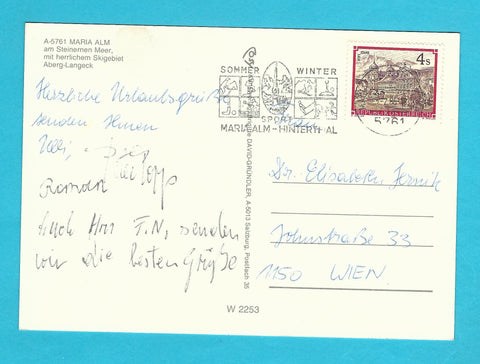 A-5761 MARIA ALM
am Steinernen Meer,
mit herrlichem Skigebiet
Aberg-Langeck
Herzliche Urlaubsgrüße
senden Ihnen
Roman
Auch Hrn T.N. senden
wir die besten Grüße
SOMMER WINTER
SPORT
MARIA ALM - HINTERTHAL
4 S
REPUBLIK ÖSTERREICH
5761
DAVID GRÜNDLER, A-5013 Salzburg, Postfach 35
Dr. Elisabeth
Johnstraße 33
1150 WIEN
W 2253